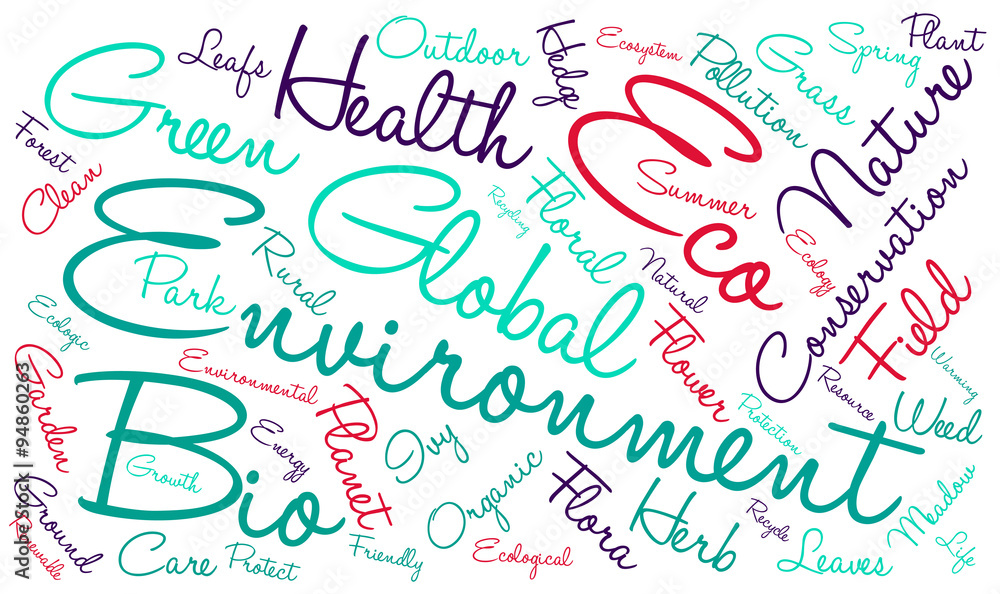 Leafs
Outdoor
Hedge
Ecosystem
Pollution
Grass
Spring
Plant
Green
Health
Eco
Nature
Forest
Clean
Summer
Recycling
Floral
Global
Conservation
Environment
Park
Rural
Natural
Ecology
Field
Ecologic
Flower
Resource
Warming
Garden
Environmental
Planet
Ivy
Protection
Weed
Bio
Growth
Energy
Organic
Flora
Herb
Recycle
Meadow
Ground
Renewable
Care
Protect
Friendly
Ecological
Leaves
Life
Adobe Stock | #94860263
Adobe Stock